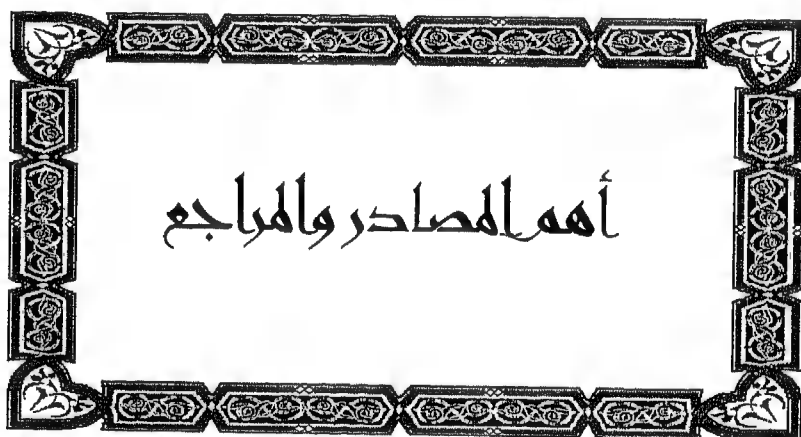 أهم المصادر والمراجع